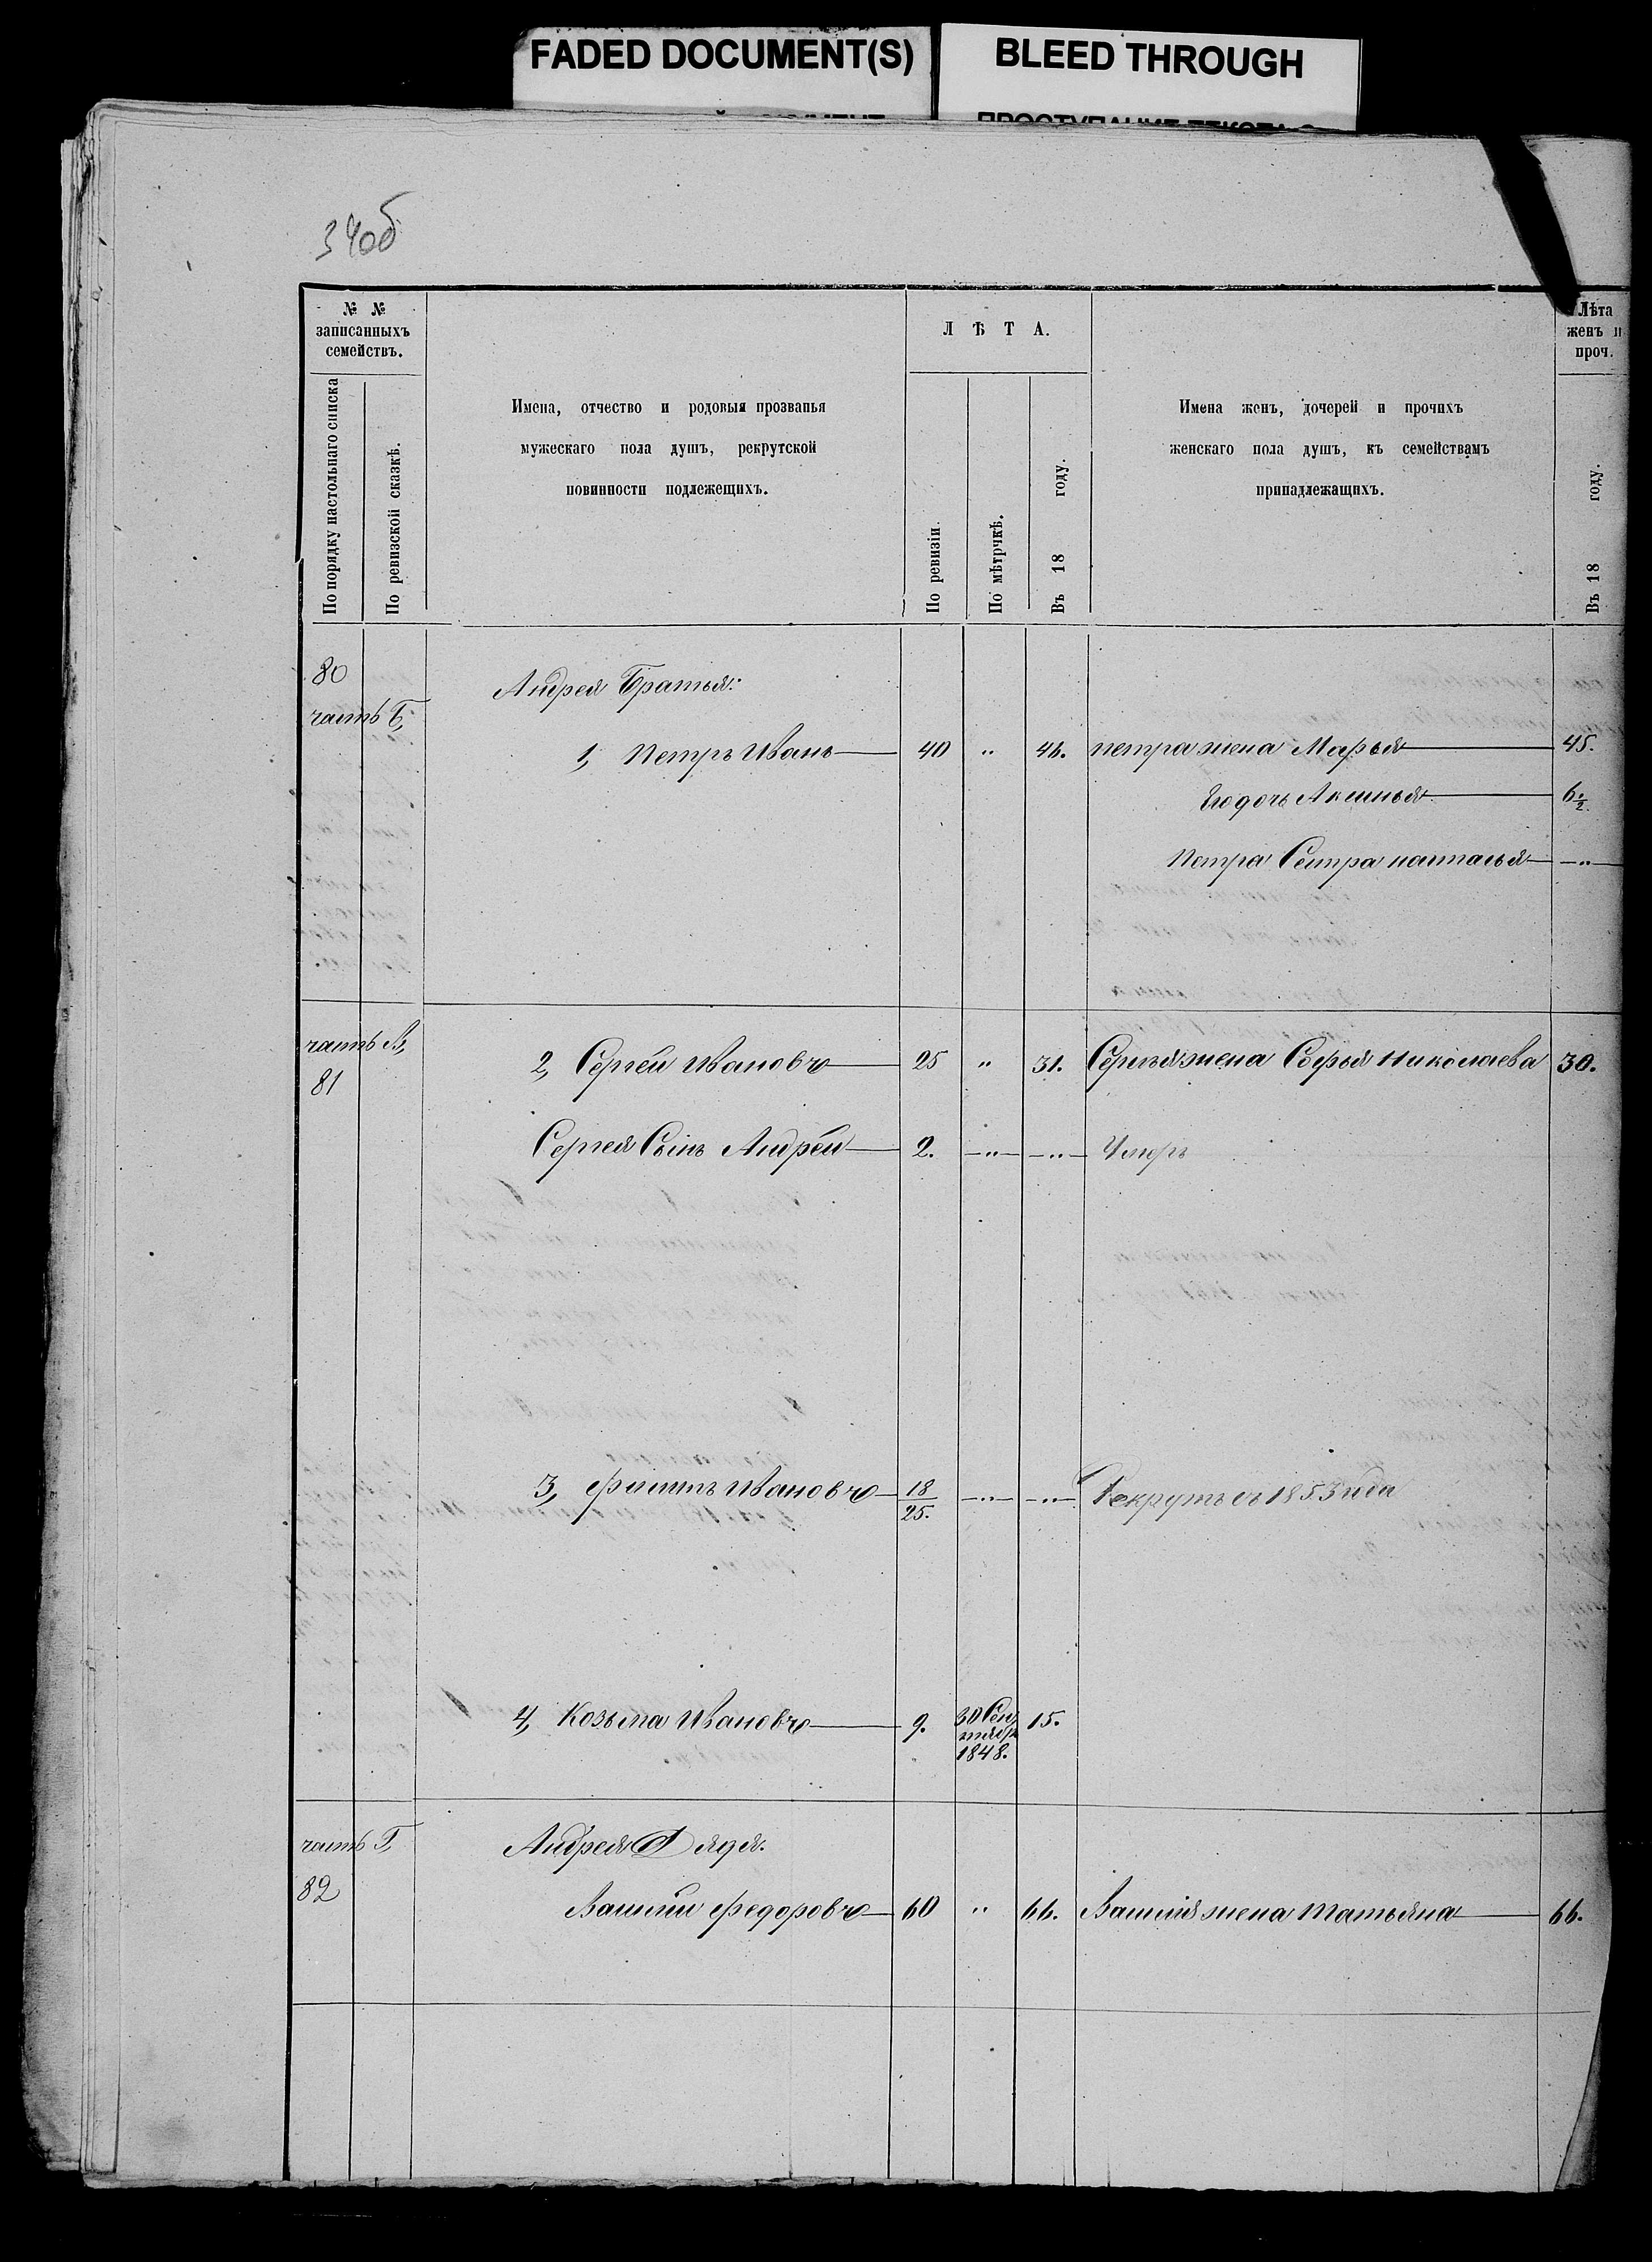 FADED DOCUMENT(S)
BLEED THROUGH
34об
№ №
записанныхъ
семействъ.
По порядку настольнаго списка
По ревизской сказкѣ.
Имена, отчество и родовыя прозванья
мужескаго пола душъ, рекрутской
повинности подлежещихъ.
Л Ѣ Т А.
По ревизіи
По мѣтрчкѣ.
Въ 18 году.
Имена женъ, дочерей и прочихъ
женскаго пола душъ, къ семействамъ
принадлежащихъ.
Лѣта
женъ и
проч.
Въ 18 году.
80
часть Б,
Андрея Братья:
1, Петръ Иванъ 40 " 46. петра жена Марья 45.
Ево дочь Аксинья 6½
Петра Сестра наталья "
часть В,
81
2, Сергей Ивановъ 25 " 31. Сергѣя жена Софья Николаева 30.
Сергея Сынъ Андрей 2. " " Умеръ
3, филипъ Ивановъ 18/25. " " Рекрутъ съ 1853 года
4, Козьма Ивановъ 9. 30 Сен
тября
1848. 15.
часть Г,
82
Андрея Дядя.
Василий федоровъ 60 " 66. Василия жена татьяна 66.